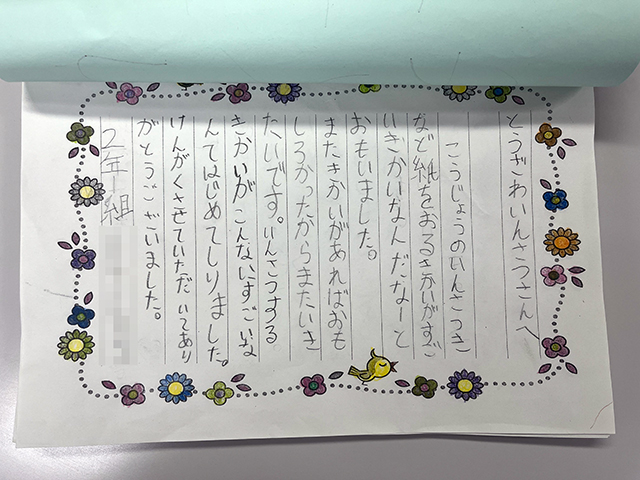 とうざわいんさつさんへ
こうじょうのいんさつき
など紙をおるきかいがすご
いきかいなんだなーと
おもいました。
またきかいがあればおも
しろかったからまたいき
たいです。いんさつする
きかいがこんないすごいな
んてはじめてしりました。
けんがくさせていただいてあり
がとうございました。
２年１組